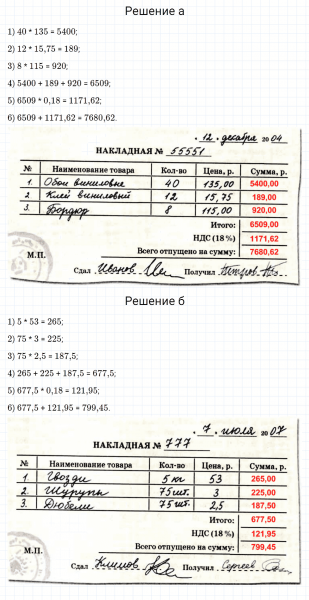 Решение а
1) 40 * 135 = 5400;
2) 12 * 15,75 = 189;
3) 8 * 115 = 920;
4) 5400 + 189 + 920 = 6509;
5) 6509 * 0,18 = 1171,62;
6) 6509 + 1171,62 = 7680,62.
12. декабря 2004
НАКЛАДНАЯ № 55551
№ Наименование товара Кол-во Цена, р. Сумма, р.
1. Обои виниловые 40 135,00 5400,00
2. Клей виниловый 12 15,75 189,00
3. Бордюр 8 115,00 920,00
Итого: 6509,00
НДС (18 %) 1171,62
Всего отпущено на сумму: 7680,62
М.П.
Сдал Иванов Получил Петров
Решение б
1) 5 * 53 = 265;
2) 75 * 3 = 225;
3) 75 * 2,5 = 187,5;
4) 265 + 225 + 187,5 = 677,5;
5) 677,5 * 0,18 = 121,95;
6) 677,5 + 121,95 = 799,45.
7. июля 2007
НАКЛАДНАЯ № 777
№ Наименование товара Кол-во Цена, р. Сумма, р.
1. Гвозди 5 кг 53 265,00
2. Шурупы 75 шт. 3 225,00
3. Дюбели 75 шт. 2,5 187,50
Итого: 677,50
НДС (18 %) 121,95
Всего отпущено на сумму: 799,45
М.П.
Сдал Климов Получил Сергеев